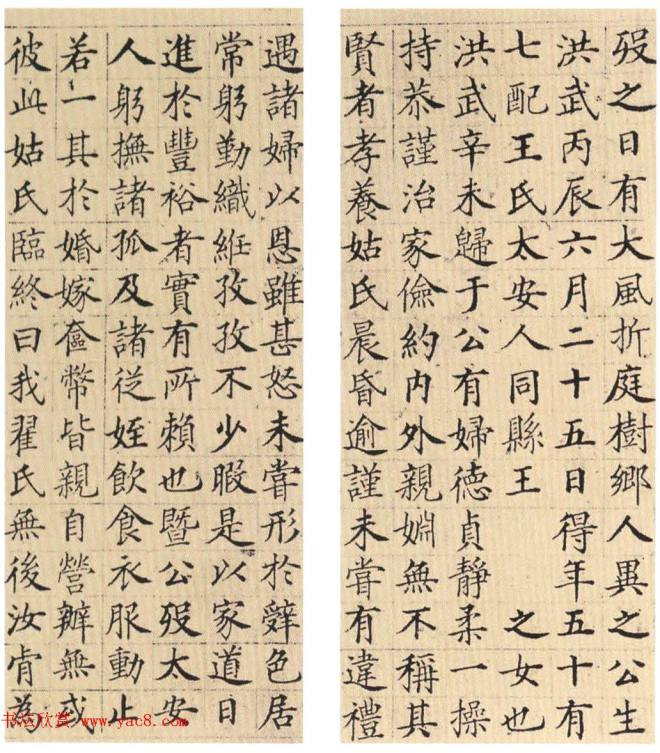 歿之日有大風折庭樹鄉人異之公生
洪武丙辰六月二十五日得年五十有
七配王氏太安人同縣王　之女也
洪武辛未歸于公有婦德貞靜柔一操
持恭謹治家儉約內外親婣無不稱其
賢者孝養姑氏晨昏逾謹未嘗有違禮
遇諸婦以恩雖甚怒未嘗形於辭色居
常躬勤織絍孜孜不少暇是以家道日
進於豐裕者實有所賴也暨公歿太安
人躬撫諸孤及諸從姪飲食衣服動止
若一其於婚嫁奩幣皆親自營辦無或
彼此姑氏臨終曰我翟氏無後汝肯為
书法欣赏 www.yac8.com